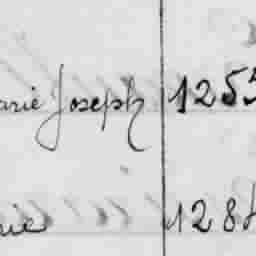 arie Joseph 1255
rie 128